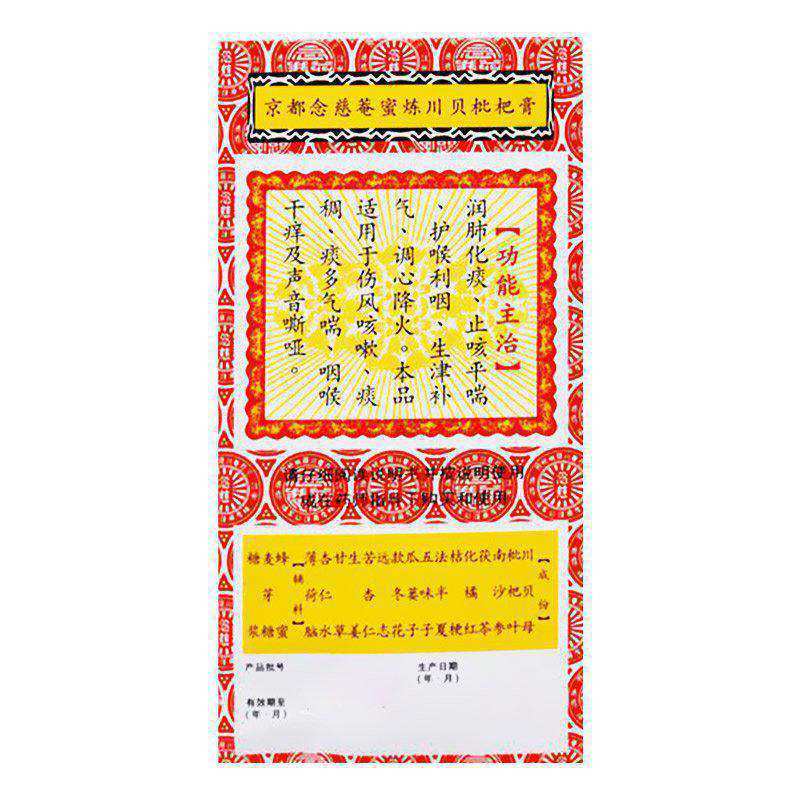 京都念慈菴蜜炼川贝枇杷膏
【功能主治】
润肺化痰、止咳平喘
、护喉利咽、生津补
气、调心降火。本品
适用于伤风咳嗽、痰
稠、痰多气喘、咽喉
干痒及声音嘶哑。
请仔细阅读说明书并按说明使用
或在药师指导下购买和使用
【成份】
川贝母
枇杷叶
南沙参
茯苓
化橘红
桔梗
法半夏
五味子
瓜蒌子
款冬花
远志
苦杏仁
生姜
甘草
杏仁水
薄荷脑
【辅料】
蜂蜜
麦芽糖
糖浆
产品批号
生产日期
(年 月)
有效期至
(年 月)